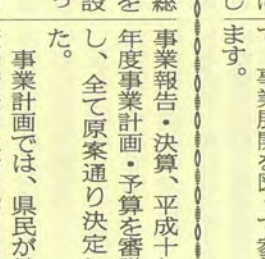 ます。
事業報告・決算、平成十
年度事業計画・予算を審
し、全て原案通り決定
た。
事業計画では、県民が
総
を
設
っ